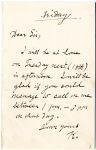 Friday
Dear Sir,
I will be at home
on Tuesday next (14th)
in afternoon. I will be
glad if you could
manage to call on me
between 1 pm - 3 pm
on that day.
Yours